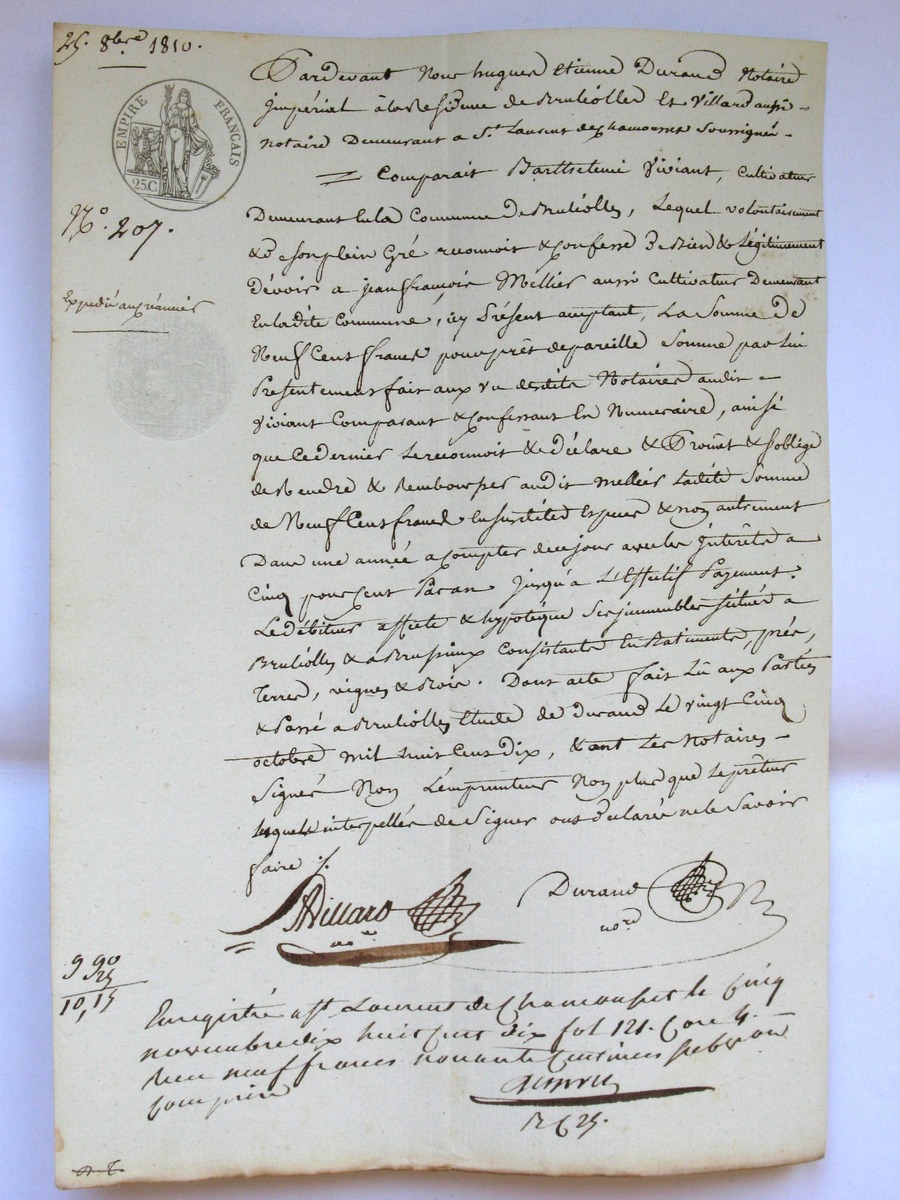 25. 8bre 1810.
EMPIRE FRANÇAIS
25C.
No. 207.
Expédié au créancier
Pardevant Nous hugues Etienne Durand Notaire
impérial à la Residence de Brullioles Et Villard aussi
notaire Demeurant a St. Laurent de chamousset Soussignés
Comparait Barthelemi Viviant, Cultivateur
Demeurant En la Commune de Brullioles, Lequel volontairement
& de son plein Gré reconnoit & confesse De Bien & Légitimement
dévoir a jean françois Mellier aussi Cultivateur Demeurant
En ladite Commune, icy Présent acceptant, La Somme de
Neuf Cent francs pour prêt de pareille Somme par lui
Presentement fait aux vu desdits Notaires audit
Viviant Comparant & confessant En Numeraire, ainsi
que Ce dernier Le reconnoit & le déclare & Promet & s'oblige
de Rendre & Rembourser audit Mellier Ladite Somme
de Neuf Cent francs En susdites Espèces & non autrement
Dans une année a compter de ce jour avec les Intérêts a
Cinq pour Cent Par an jusqu'a L'Effectif Payement.
Le débiteur affecte & hypotéque Ses immeubles Situés a
Brullioles & a Brussieux Consistants En Batiments, prés,
Terres, vignes & Bois. Dont acte fait Lû aux Parties
& Passé a Brullioles Etude de Durand Le vingt Cinq
octobre mil huit Cent dix, & ont Les Notaires
Signé Non L'emprunteur Non plus que Le prêteur
lesquels interpellés de Signer ont Déclaré ne le Savoir
faire ./.
Villard
nore
Durand
nore
9 90
25
10,15
Enregistré a St. Laurent de Chamousset le Cinq
novembre dix huit cent dix fol 121. Case 4.
Reçu neuf francs nonante Centimes Subvention
Comprise
R C 25.